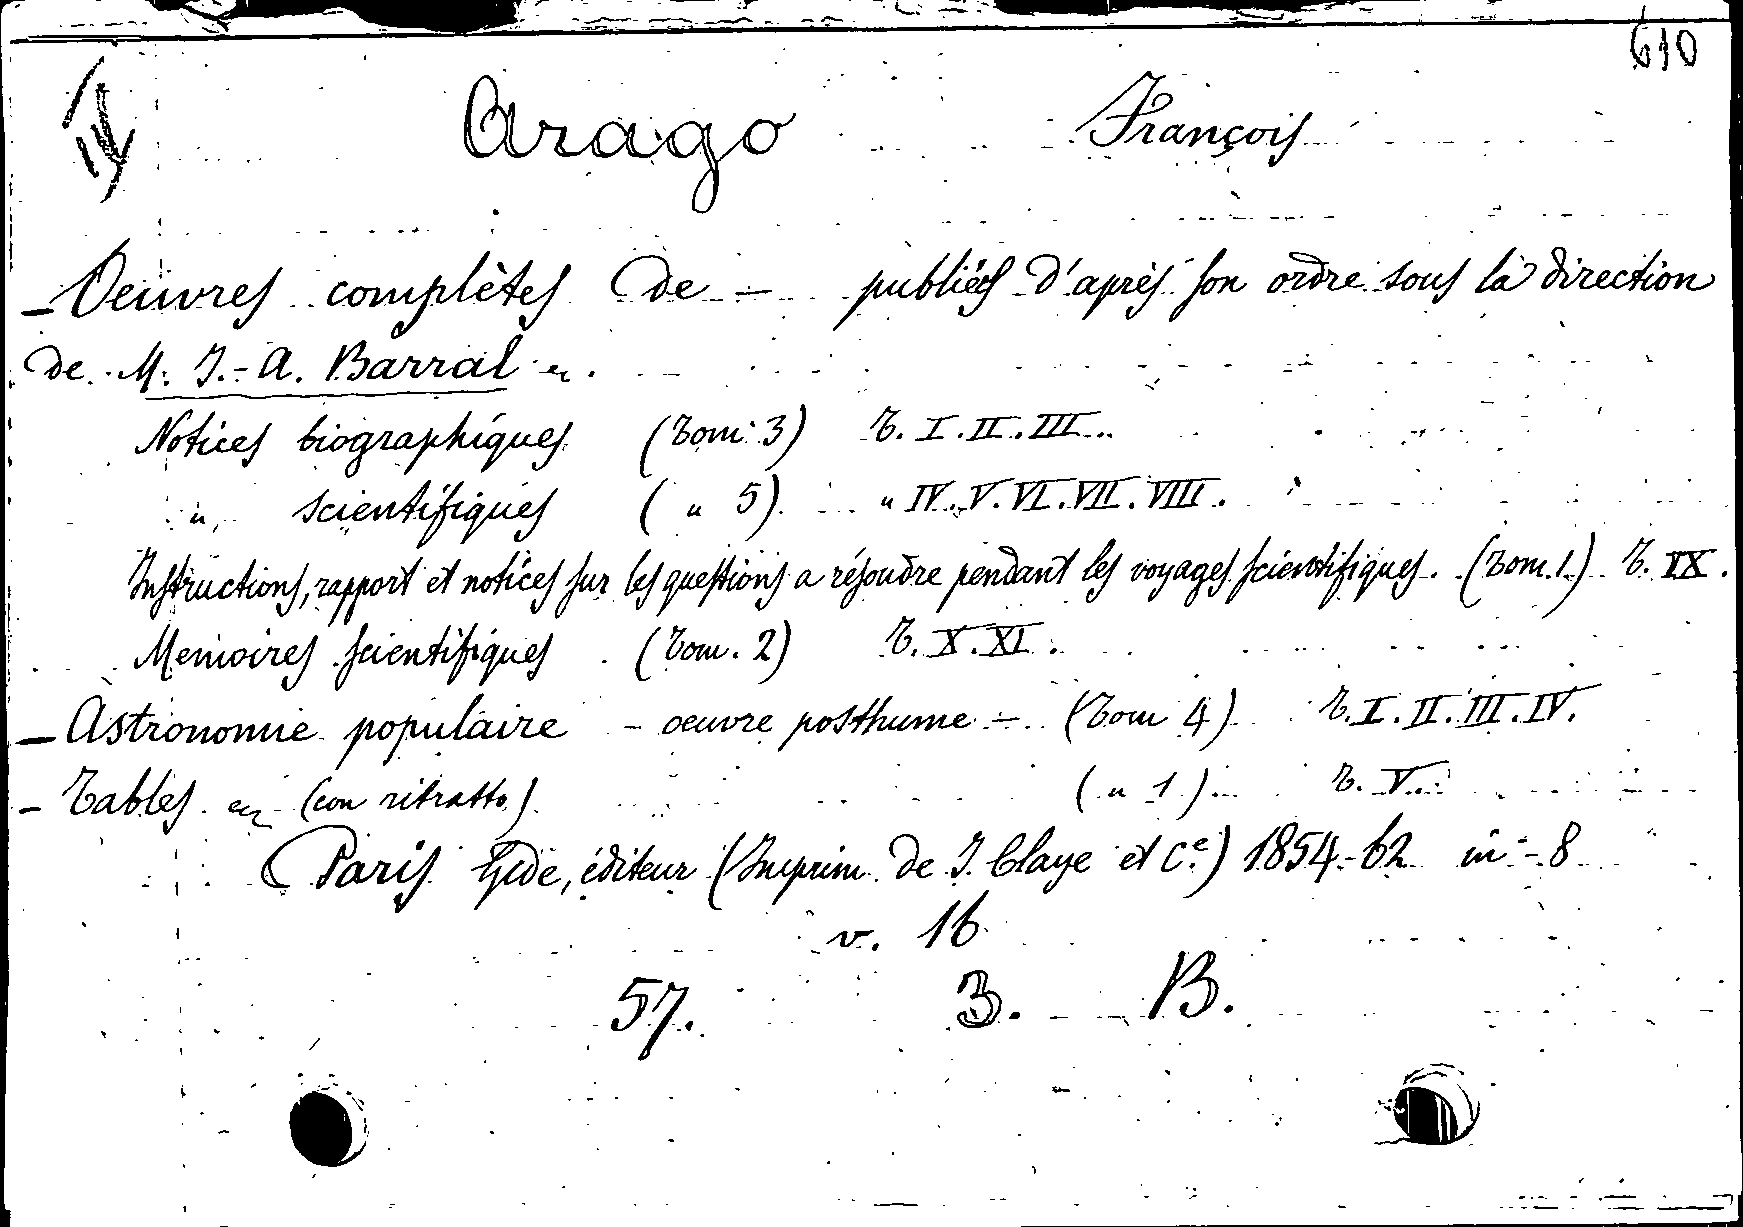 610
IV
Arago François
– Oeuvres complètes de – publiées d'après son ordre sous la direction
de M. J.-A. Barral
Notices biographiques (Tom. 3) T. I. II. III.
" scientifiques ( " 5) " IV. V. VI. VII. VIII.
Instructions, rapport et notices sur les questions a résoudre pendant les voyages scientifiques. (Tom. 1.) T. IX.
Memoires scientifiques (Tom. 2) T. X. XI.
– Astronomie populaire – oeuvre posthume – (Tom 4) T. I. II. III. IV.
– Tables (con ritratto) ( " 1 ) T. V.
Paris Gide, éditeur (Imprim. de J. Claye et Ce.) 1854-62 in-8
v. 16
57. 3. B.